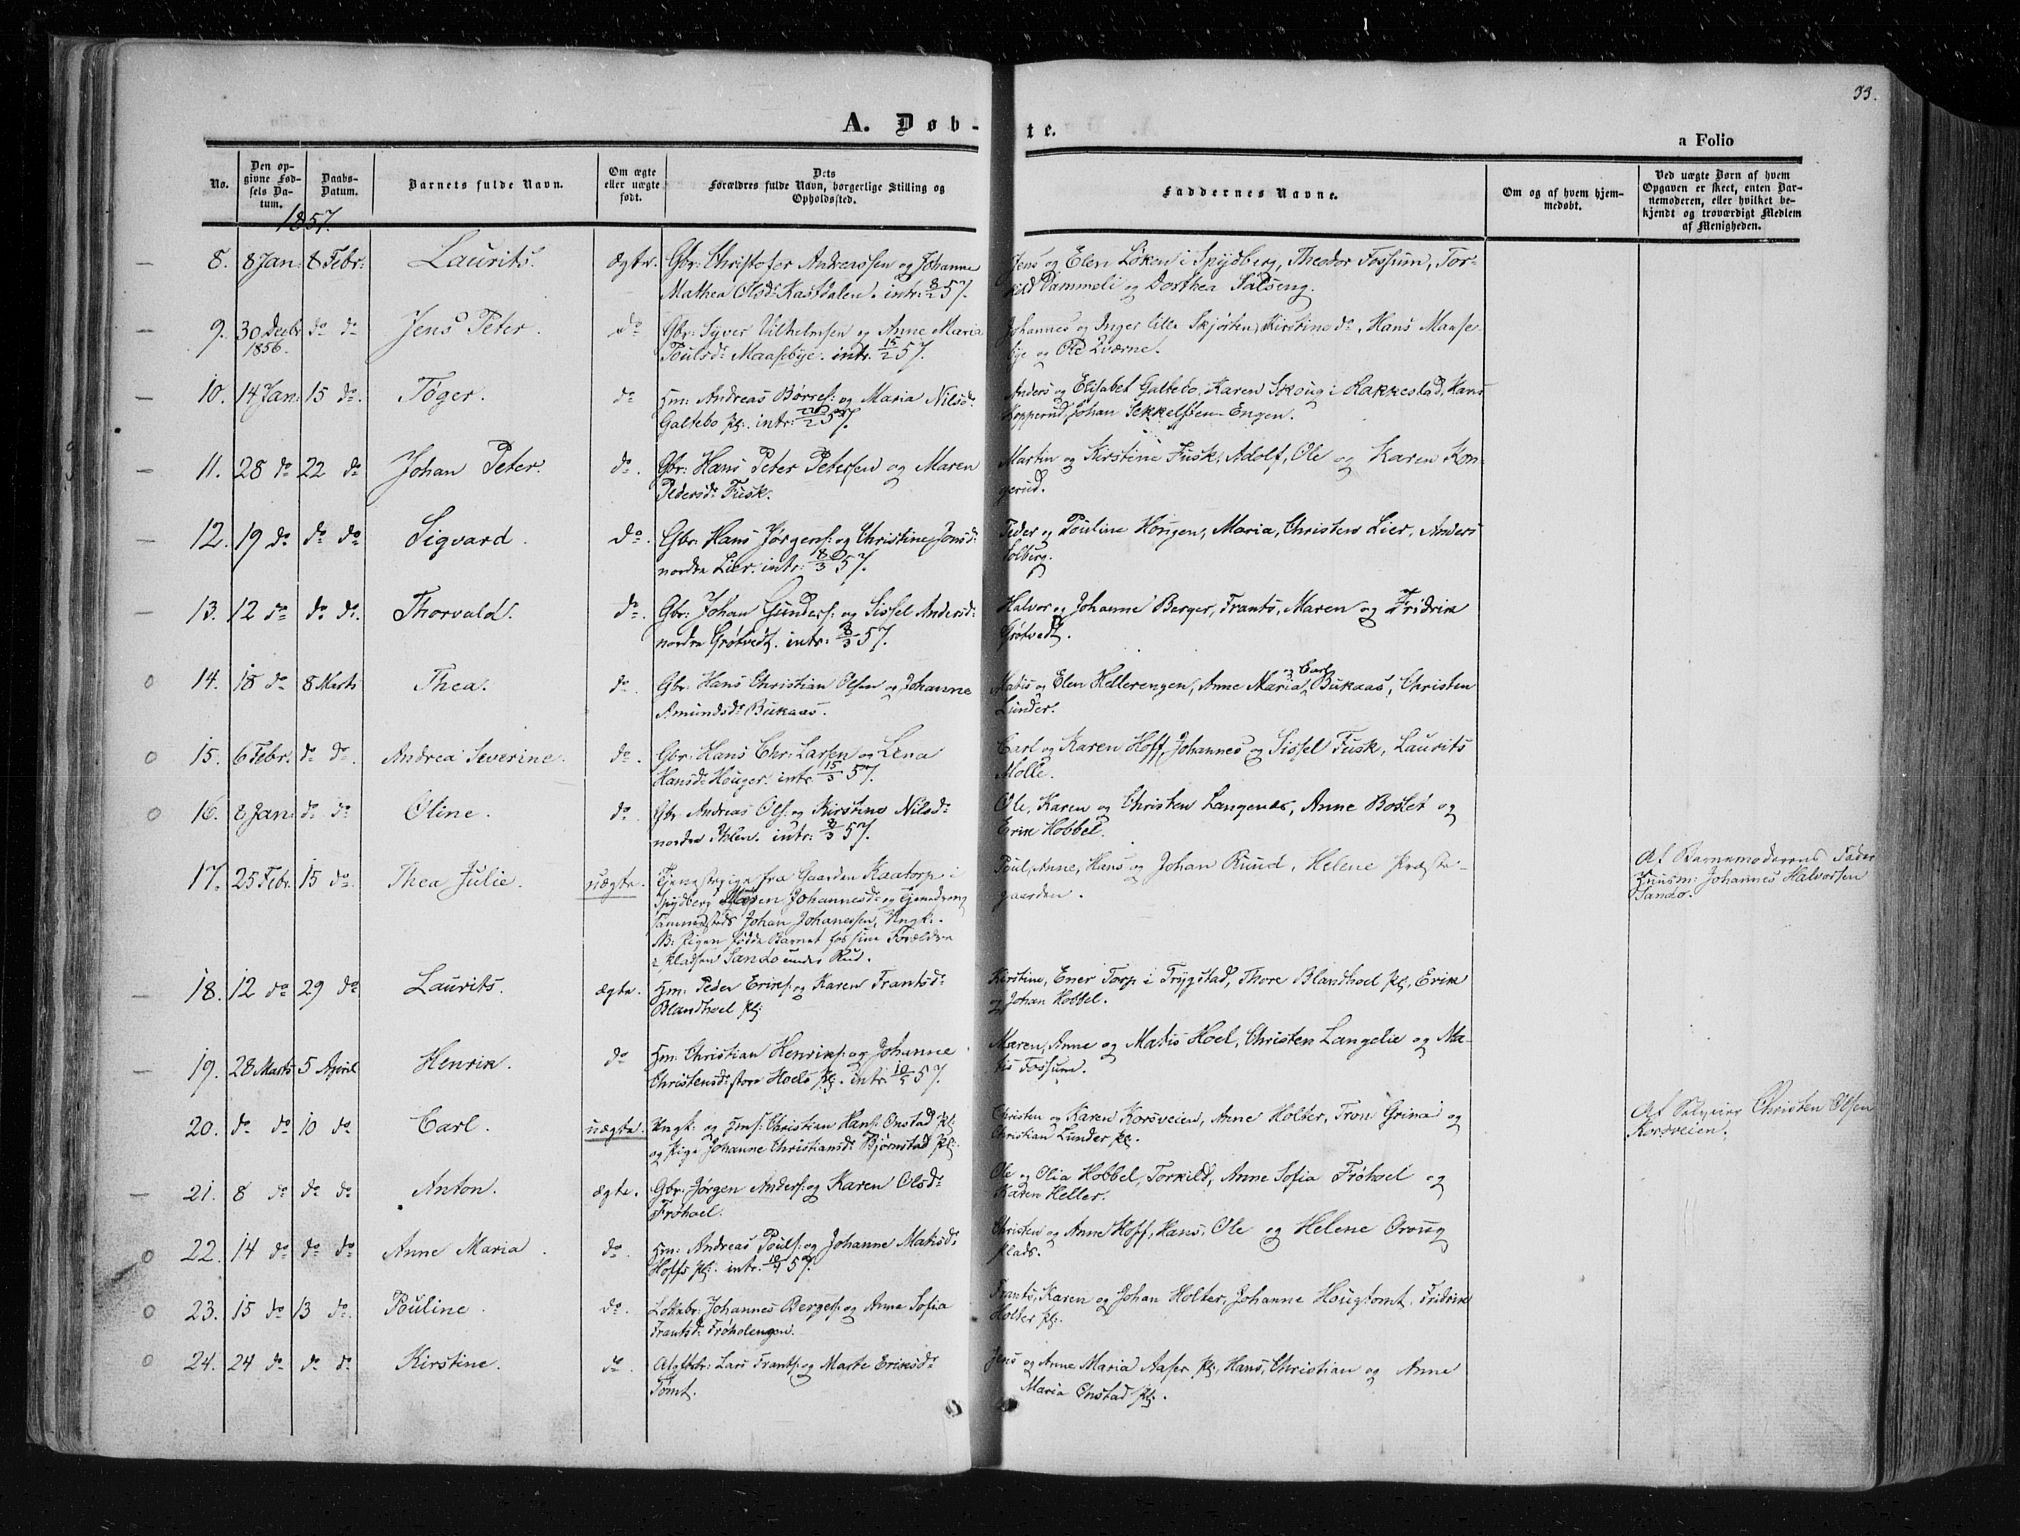 33.
A. Døb-te.
a Folio
No.
Den opgivne Fødsels Datum.
Daabs-Datum.
Barnets fulde Navn.
Om ægte eller uægte født.
Dets Forældres fulde Navn, borgerlige Stilling og Opholdssted.
Faddernes Navne.
Om og af hvem hjemmedøbt.
Ved uægte Børn af hvem Opgaven er skeet, enten Barnemoderen, eller hvilket bekjendt og troværdigt Medlem af Menigheden.
1857.
8. 8 Jan: 8 Febr: Laurits ægte. Gbr: Christofer Andreassen og Johanne Jens og Elen Løken i Spydberg, Theodor Fossum, Tor-
Mathea Olsd: Kastdalen. intr: 8/2 57. kild Dammeli og Dorthea
9. 30 Decbr do do Jens Peter. do Gbr: Syver Vilhelmsen og Anne Maria Johannes og Inger lille Skjørten, Kirstine do, Hans Maase-
1856. Poulsd: Maasebye. intr: 15/2 57. bye og Ole Qværne.
10. 14 Jan: 15 do. Tøger. do Hm: Andreas Børres: og Maria Nilsd: Anders og Elisabet Galtebo, Karen Skoug i Rakkestad, Hans
Galtebo pl: intr: 22/2 57. Kopperud, Johan Engen.
11. 28 do 22 do Johan Peter. do. Gbr: Hans Peter Petersen og Maren Martin og Kirstine Fusk, Adolf, Ole og Karen Kon-
Pedersd: Fusk. gerud.
12. 19 do do do Sigvard. do. Gbr: Hans Jørgens: og Christine Jonsd: Peder og Pouline Hougen, Maria, Christen Lier, Anders
nordre Lier. intr: 8/3 57. Solberg.
13. 12 do do do. Thorvald. do. Gbr: Johan Gunders: og Sissel Andersd: Halvor og Johanne Berger, Frants, Maren og Fridrik
nordre Grøtvedt. intr: 8/3 57. Grøtvedt.
14. 18 do 8 Marts Thea. do. Gbr: Hans Christian Olsen og Johanne Matis og Elen Hellerengen, Anne Maria og Carl Bukaas, Christen
Amundsd: Bukaas. Lunder.
15. 6 Febr. do do. Andrea Severine. do. Gbr: Hans Chr: Larsen og Lena Carl og Karen Hoff, Johannes og Sissel Fusk, Laurits
Hansd: Houger. intr: 15/3 57. Molle.
16. 8 Jan: do do Oline. do. Gbr Andreas Ols: og Kirstine Nilsd: Ole, Karen og Christen Langenæs, Anne Boslet og
nordre Ihlen. intr: 8/3 57. Erik Hobbel.
17. 25 Febr. 15 do Thea Julie. uægte. Tjenestepige fra Gaarden Kaatorp i Poul, Anne, Hans og Johan Ruud, Helene Præste- Af Barnemoderens Fader
Spydberg Maren Johannesd: og Tjenestdreng gaarden. Huusm: Johannes Halvorsen
Johan Johanessen, Ungk: Sando.
NB: Pigen fødde Barnet hos sine Forældre
i Pladsen Sando under Rud.
18. 12 do 29 do Laurits. ægte. Hm: Peder Eriks: og Karen Frantsd: Kirstine, Ener Torp i Trygstad, Thore Blandhoel pl:, Erik
Blandhoel pl: og Johan Hobbel.
19. 28 Marts 5 April Henrik. do Hm: Christian Henriks: og Johanne Maren, Anne og Matis Hoel, Christen Langelie og Ma-
Christensd: store Hoels pl: intr: 10/5 57. tis Fossum.
20. do do 10 do Carl. uægte. Ungk: og Christian Hans: Onstad pl: Christen og Karen Korsveien, Anne Holter, Tron Grina og Af Selveier Christen Olsen
og Pige Johanne Christiansd: Bjørnstad pl: Christian Lunder pl. Korsveien.
21. 8 do do do Anton. ægte. Gbr: Jørgen Anders: og Karen Olsd: Ole og Olia Hobbel, Torkild, Anne Sofia Frøhoel og
Frøhoel. Karen Heller.
22. 14 do do do Anne Maria. do. Hm: Andreas Pouls: og Johanne Matisd: Christen og Anne Hoff, Hans, Ole og Helene Oroug
Hoffs pl: intr: 57. plads.
23. 15 do 13 do. Pouline. do. Johannes Berges: og Anne Sofia Frants, Karen og Johan Holter, Johanne Hougtomt, Fridrik
Frantsd: Frøholengen. Holter pl:
24. 24 do do do Kirstine. do Lars Frants: og Marte Eriksd: Jens og Anne Maria Aaser pl:, Hans, Christian og Anne
Tømt. Maria Onstad pl:.